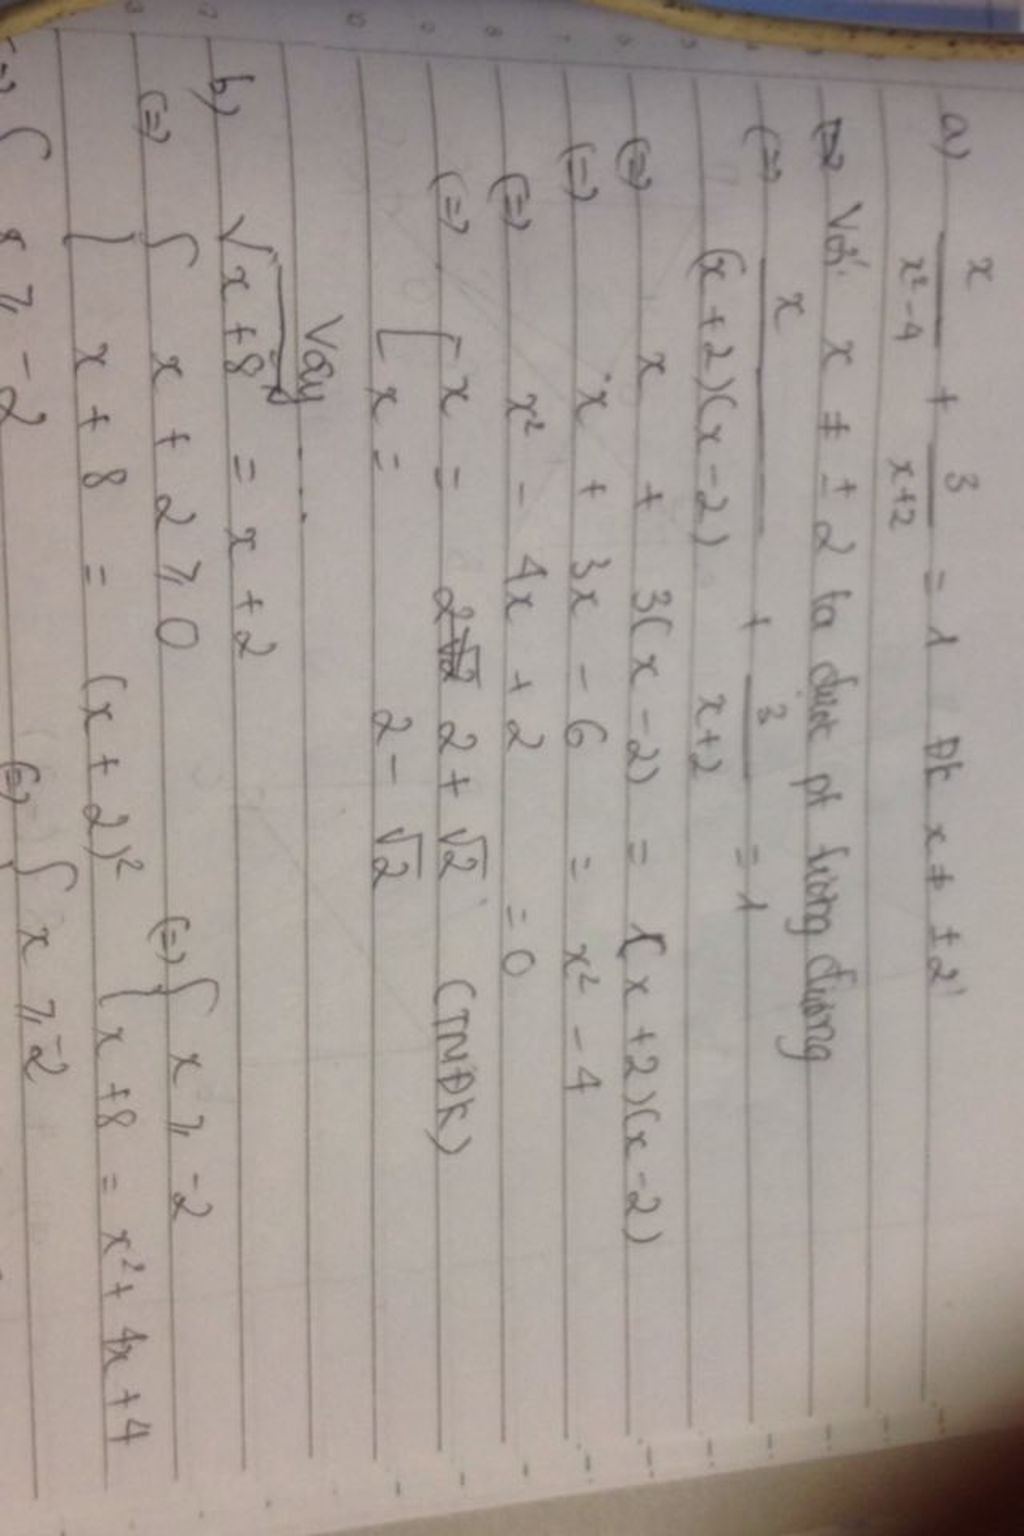 a) x/(x²-4) + 3/(x+2) = 1 ĐK x ≠ ±2
Với x ≠ ±2 ta được pt tương đương
(=) x/((x+2)(x-2)) + 3/(x+2) = 1
(=) x + 3(x-2) = (x+2)(x-2)
(=) x + 3x - 6 = x² - 4
(=) x² - 4x + 2 = 0
(=) [ x = 2 + √2 (TMĐK)
x = 2 - √2
Vậy ...
b) √(x+8) = x + 2
(=) { x + 2 ⩾ 0 (=) { x ⩾ -2
x + 8 = (x + 2)² { x + 8 = x² + 4x + 4
(=) { ⩾ -2 (=) { x ⩾ -2